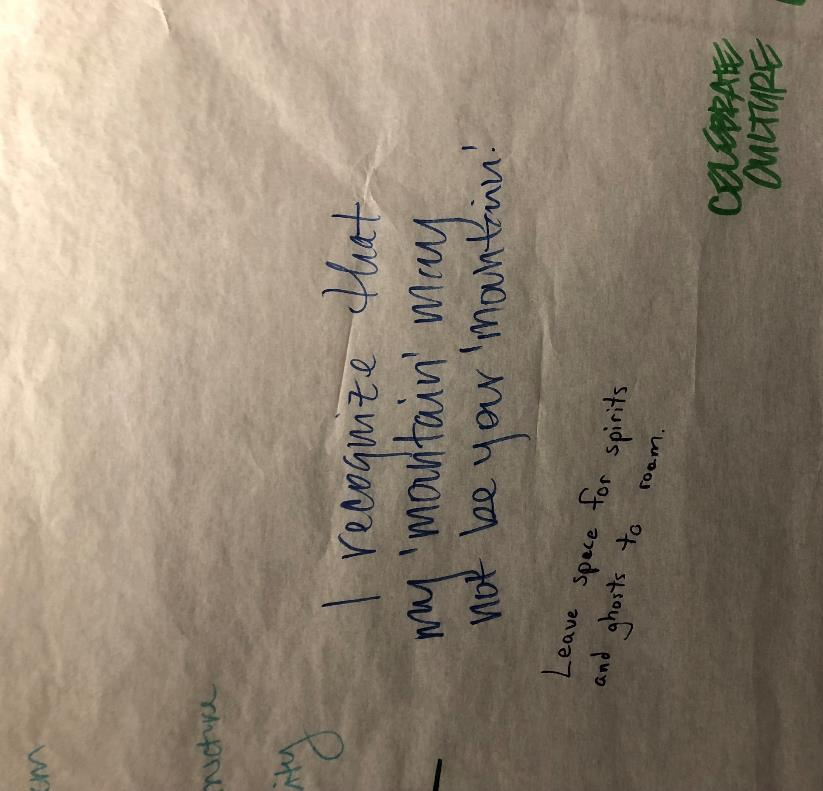 I recognize that
my 'mountain' may
not be your 'mountain'.
Leave space for spirits
and ghosts to roam.
CELEBRATE
CULTURE
ity